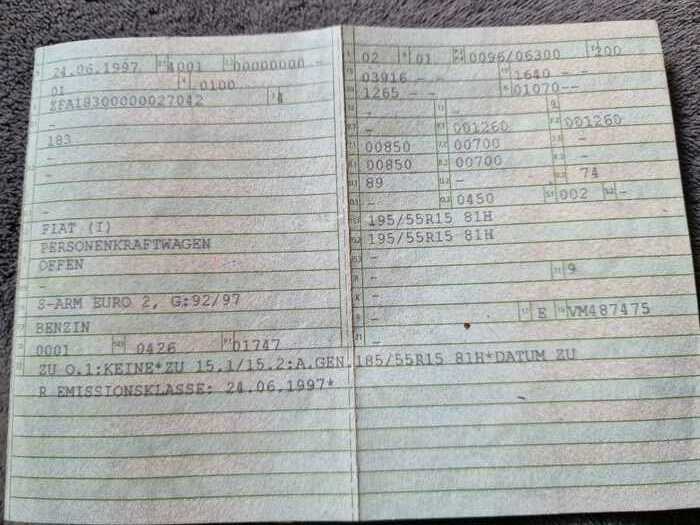 24.06.1997 4001 00000000 -
01 0100
ZFA18300000027042
-
183
-
-
-
-
FIAT (I)
PERSONENKRAFTWAGEN
OFFEN
-
S-ARM EURO 2, G:92/97
BENZIN
0001 0426 01747
02 01 0096/06300 200
03916 - - 1640 - -
1265 - - 01070--
- -
- 001260 001260
00850 00700 -
00850 00700 -
89 - 74
- 0450 002 -
195/55R15 81H
195/55R15 81H
-
- 9
-
- E VM487475
-
ZU O.1:KEINE*ZU 15.1/15.2:A.GEN.185/55R15 81H*DATUM ZU
R EMISSIONSKLASSE: 24.06.1997*